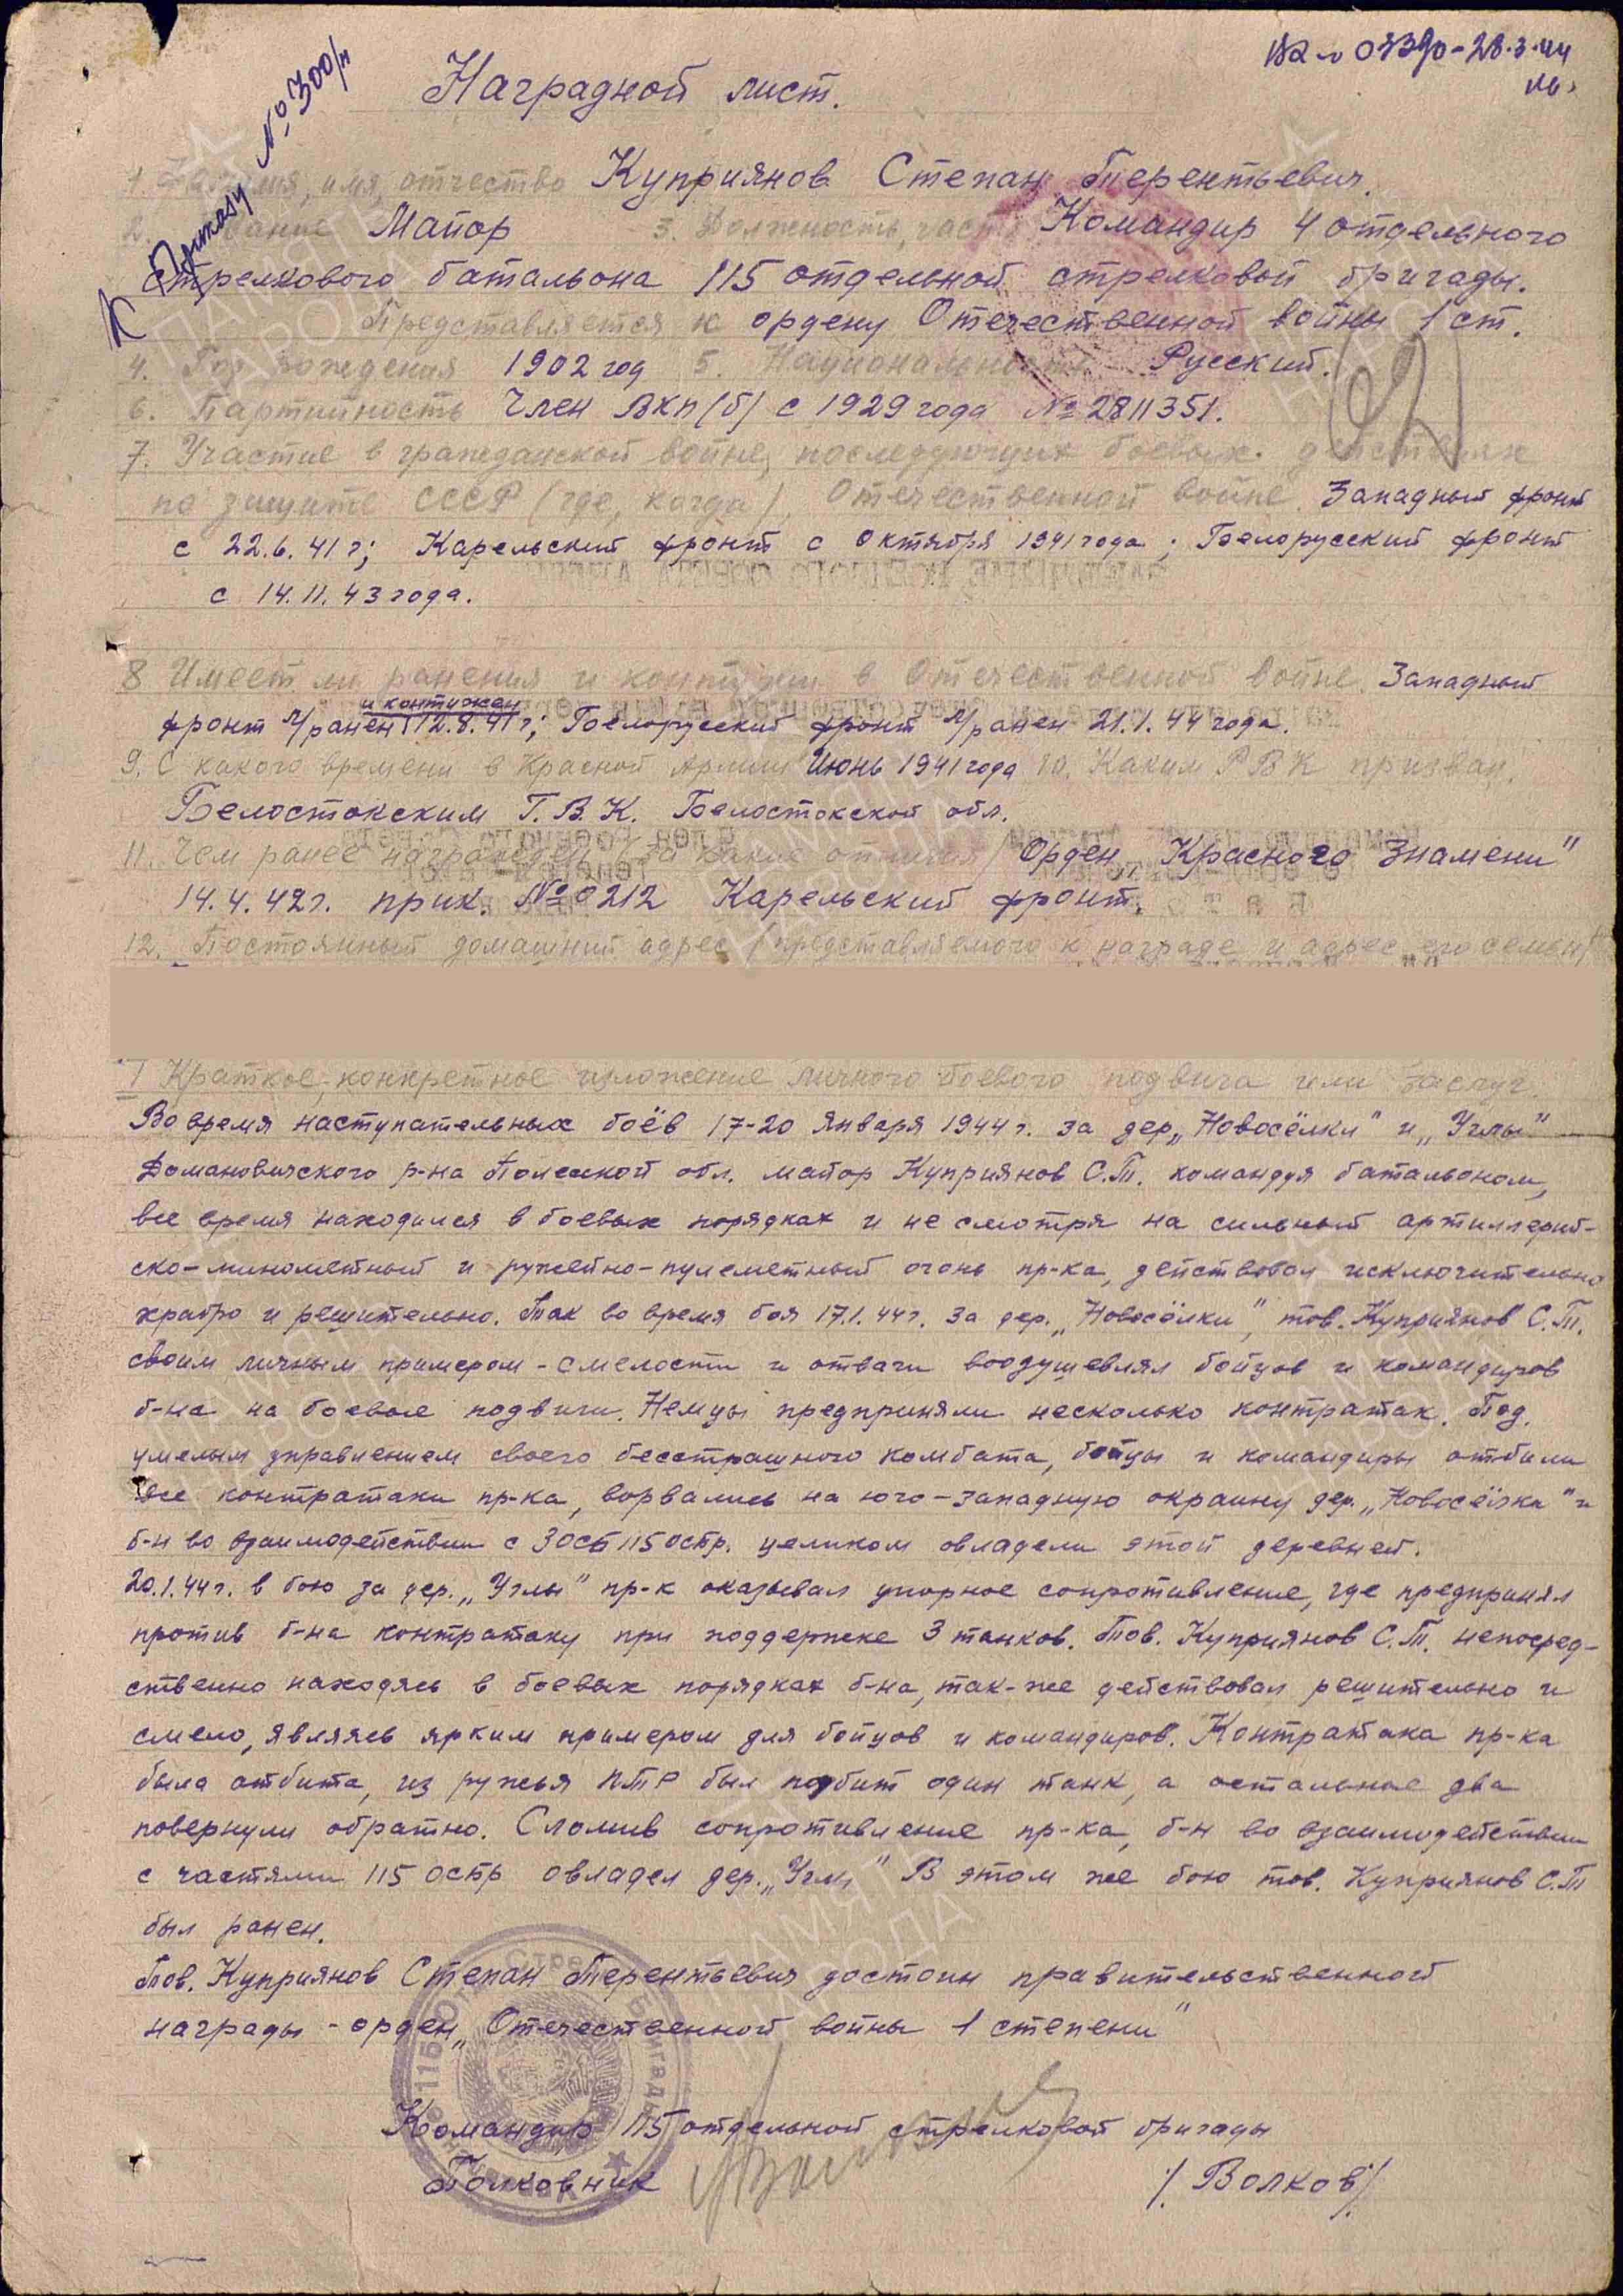 К Приказу №300/н
Наградной лист.
1. Фамилия, имя, отчество Куприянов Степан Терентьевич.
2. Звание Майор 3. Должность, часть Командир 4 отдельного
стрелкового батальона 115 отдельной стрелковой бригады.
Представляется к ордену Отечественной войны 1 ст.
4. Год рождения 1902 год 5. Национальность Русский.
6. Партийность Член ВКП(б) с 1929 года №2811351.
7. Участие в гражданской войне, последующих боевых действиях
по защите СССР (где, когда), Отечественной войне. Западный фронт
с 22.6.41 г; Карельский фронт с октября 1941 года; Белорусский фронт
с 14.11.43 года.
8 Имеет ли ранения и контузии в Отечественной войне. Западный
и контужен
фронт л/ранен 12.8.41 г; Белорусский фронт л/ранен 21.1.44 года.
9. С какого времени в Красной Армии Июнь 1941 года 10. Каким РВК призван.
Белостокским Г.В.К. Белостокской обл.
11. Чем ранее награжден (за какие отличия) Орден „Красного Знамени"
14.4.42 г. прик. №0212 Карельский фронт.
12. Постоянный домашний адрес (представляемого к награде и адрес его семьи)
I Краткое, конкретное изложение личного боевого подвига или заслуг.
Во время наступательных боёв 17-20 Января 1944 г. за дер. „Новосёлки" и „Углы"
Домановичского р-на Полесской обл. майор Куприянов С.Т. командуя батальоном,
все время находился в боевых порядках и не смотря на сильный артиллерий-
ско-минометный и ружейно-пулеметный огонь пр-ка, действовал исключительно
храбро и решительно. Так во время боя 17.1.44 г. за дер. „Новосёлки", тов. Куприянов С.Т.
своим личным примером - смелости и отваги воодушевлял бойцов и командиров
б-на на боевые подвиги. Немцы предприняли несколько контратак. Под
умелым управлением своего бесстрашного комбата, бойцы и командиры отбили
все контратаки пр-ка, ворвались на юго-западную окраину дер. „Новосёлки" и
б-н во взаимодействии с 3 ОСБ 115 остр. целиком овладели этой деревней.
20.1.44 г. в бою за дер. „Углы" пр-к оказывал упорное сопротивление, где предпринял
против б-на контратаку при поддержке 3 танков. Тов. Куприянов С.Т. непосред-
ственно находясь в боевых порядках б-на, так-же действовал решительно и
смело, являясь ярким примером для бойцов и командиров. Контратака пр-ка
была отбита, из ружья ПТР был подбит один танк, а остальные два
повернули обратно. Сломив сопротивление пр-ка, б-н во взаимодействии
с частями 115 остр овладел дер. „Углы" В этом же бою тов. Куприянов С.Т
был ранен.
Тов. Куприянов Степан Терентьевич достоин правительственной
награды - орден „Отечественной войны 1 степени"
Командир 115 отдельной стрелковой бригады
Полковник /Волков/.